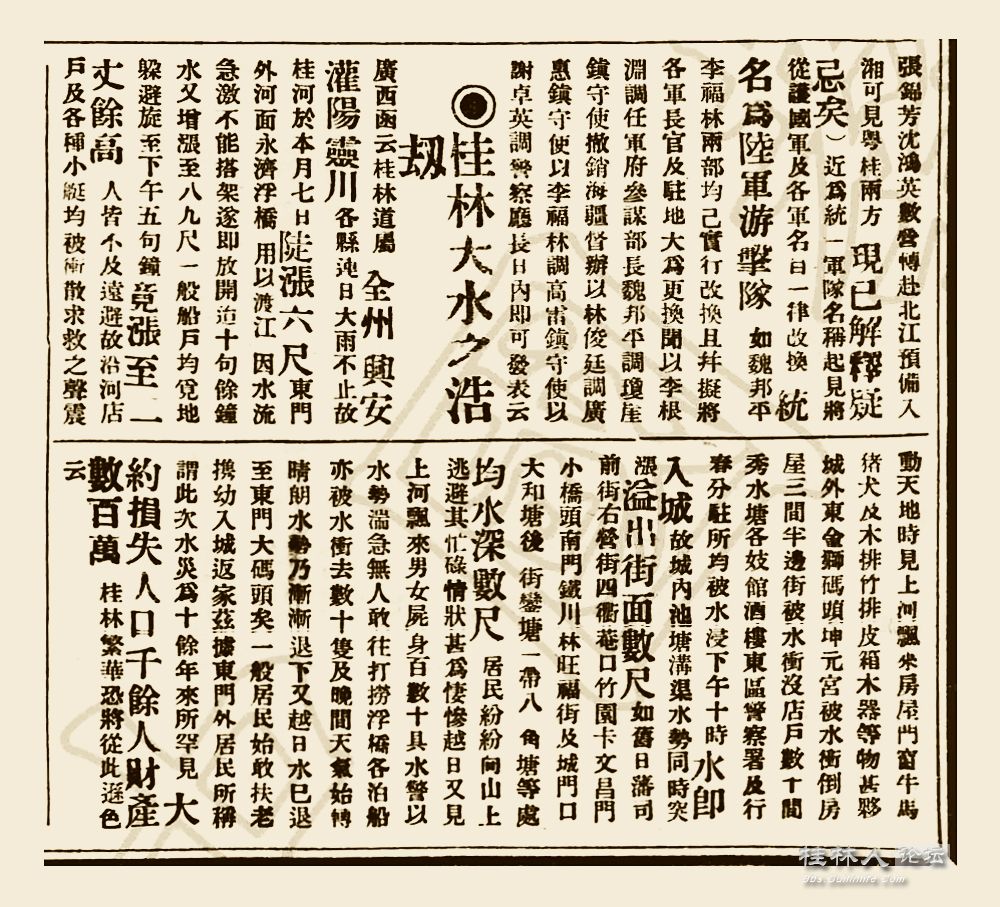 張錦芳沈鴻英數營轉赴北江預備入
湘可見粤桂兩方 現已解釋疑
忌矣）近爲統一軍隊名稱起見將
從護國軍及各軍名目一律改換 統
名爲陸軍游擊隊 如魏邦平
李福林兩部均已實行改換且幷擬將
各軍長官及駐地大爲更換聞以李根
淵調任軍府參謀部長魏邦平調瓊崖
鎮守使撤銷海疆督辦以林俊廷調廣
惠鎮守使以李福林調高雷鎮守使以
謝卓英調警察廳長日內即可發表云
◉桂林大水之浩
劫
廣西函云桂林道屬 全州興安
灌陽靈川各縣連日大雨不止故
桂河於本月七日陡漲六尺東門
外河面永濟浮橋 用以渡江 因水流
急激不能搭架遂即放開迨十句餘鐘
水又增漲至八九尺一般船戶均覓地
躱避旋至下午五句鐘竟漲至二
丈餘高 人皆不及遠避故沿河店
戶及各種小艇均被衝散求救之聲震
動天地時見上河飄來房屋門窗牛馬
猪犬及木排竹排皮箱木器等物甚夥
城外東金獅碼頭坤元宮被水衝倒房
屋三間半邊街被水衝沒店戶數十間
秀水塘各妓館酒樓東區警察署及行
春分駐所均被水浸下午十時水卽
入城故城內池塘溝渠水勢同時突
漲溢出街面數尺如舊日藩司
前街右營街四衢菴口竹園卡文昌門
小橋頭南門鐵川林旺福街及城門口
大和塘後 街鑾塘一帶八 角塘等處
均水深數尺 居民紛紛向山上
逃避其忙碌情狀甚爲悽慘越日又見
上河飄來男女屍身百數十具水警以
水勢湍急無人敢往打撈浮橋各泊船
亦被水衝去數十隻及晚間天氣始轉
晴朗水勢乃漸漸退下又越日水已退
至東門大碼頭矣一般居民始敢扶老
携幼入城返家茲據東門外居民所稱
謂此次水災爲十餘年來所罕見 大
約損失人口千餘人財產
數百萬 桂林繁華恐將從此遜色
云
桂林人论坛
bbs.guilinlife.com